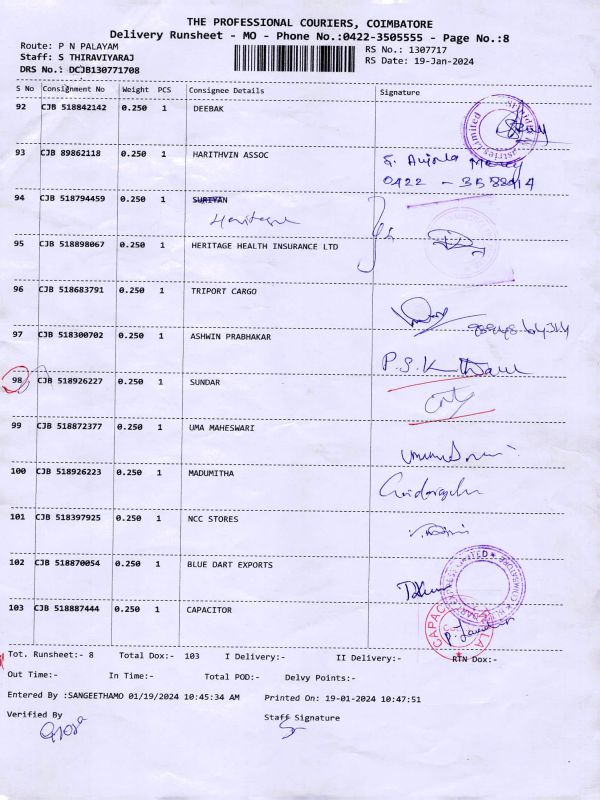 THE PROFESSIONAL COURIERS, COIMBATORE
Delivery Runsheet - MO - Phone No.:0422-3505555 - Page No.:8
Route: P N PALAYAM
Staff: S THIRAVIYARAJ
DRS No.: DCJB130771708
RS No.: 1307717
RS Date: 19-Jan-2024
S No Consignment No Weight PCS Consignee Details Signature
92 CJB 518842142 0.250 1 DEEBAK
93 CJB 89862118 0.250 1 HARITHVIN ASSOC
94 CJB 518794459 0.250 1 SURIYAN
Heritage
95 CJB 518898067 0.250 1 HERITAGE HEALTH INSURANCE LTD
96 CJB 518683791 0.250 1 TRIPORT CARGO
97 CJB 518300702 0.250 1 ASHWIN PRABHAKAR
98 CJB 518926227 0.250 1 SUNDAR
99 CJB 518872377 0.250 1 UMA MAHESWARI
100 CJB 518926223 0.250 1 MADUMITHA
101 CJB 518397925 0.250 1 NCC STORES
102 CJB 518870054 0.250 1 BLUE DART EXPORTS
103 CJB 518887444 0.250 1 CAPACITOR
Tot. Runsheet:- 8 Total Dox:- 103 I Delivery:- II Delivery:- RTN Dox:-
Out Time:- In Time:- Total POD:- Delvy Points:-
Entered By :SANGEETHAMO 01/19/2024 10:45:34 AM Printed On: 19-01-2024 10:47:51
Verified By Staff Signature